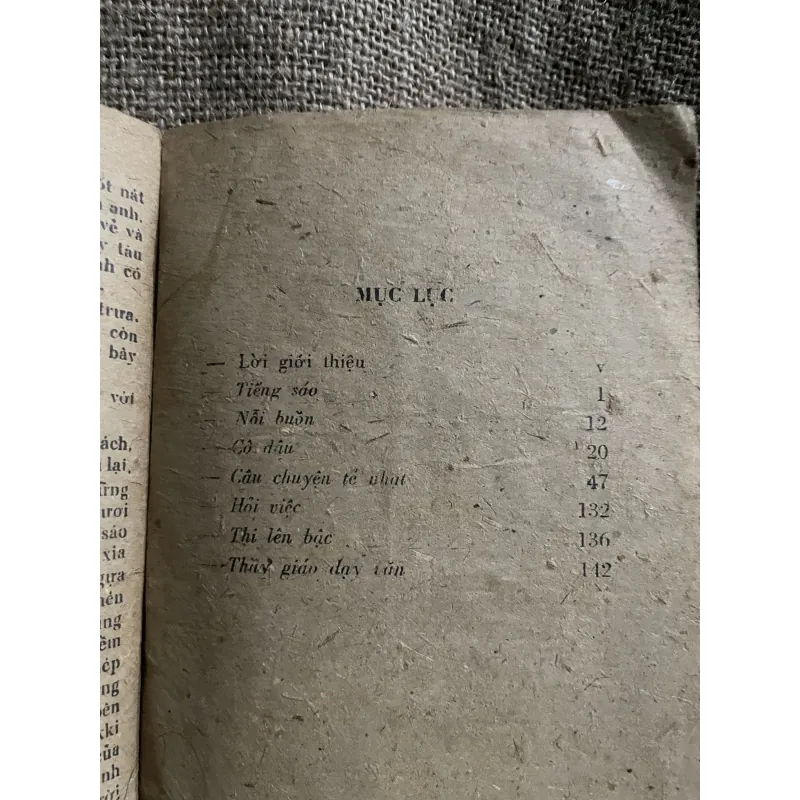 ốt nát
anh.
về và
tàu
nh có
trưa.
còn
bảy
với
ách,
lại.
ững
ươi
sáo
xia
gựa
nén
ng
ềm
ép
ng
bên
kki
của
nh
ười
MỤC LỤC
— Lời giới thiệu v
— Tiếng sáo 1
— Nỗi buồn 12
— Cô dâu 20
— Câu chuyện tẻ nhạt 47
— Hỏi việc 132
— Thi lên bậc 136
— Thầy giáo dạy văn 142